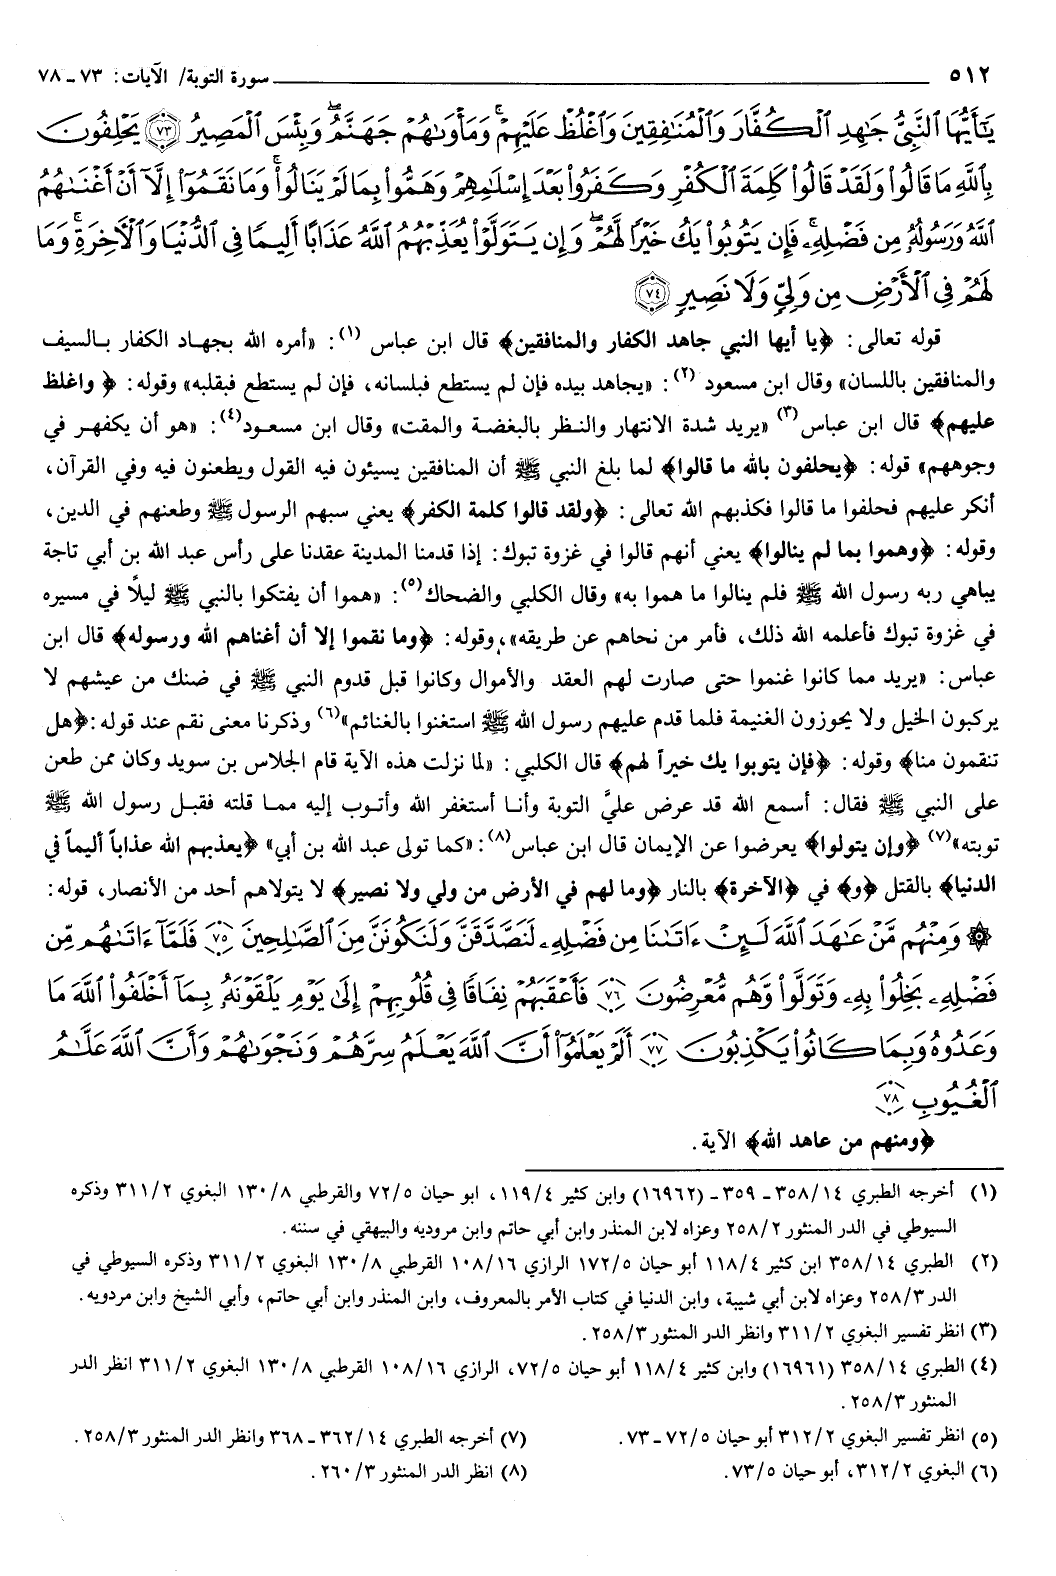 ٥١٢ سورة التوبة/ الآيات: ٧٣ ـ ٧٨
يَٰٓأَيُّهَا ٱلنَّبِىُّ جَٰهِدِ ٱلۡكُفَّارَ وَٱلۡمُنَٰفِقِينَ وَٱغۡلُظۡ عَلَيۡهِمۡۚ وَمَأۡوَىٰهُمۡ جَهَنَّمُۖ وَبِئۡسَ ٱلۡمَصِيرُ ٧٣ يَحۡلِفُونَ
بِٱللَّهِ مَا قَالُواْ وَلَقَدۡ قَالُواْ كَلِمَةَ ٱلۡكُفۡرِ وَكَفَرُواْ بَعۡدَ إِسۡلَٰمِهِمۡ وَهَمُّواْ بِمَا لَمۡ يَنَالُواْۚ وَمَا نَقَمُوٓاْ إِلَّآ أَنۡ أَغۡنَىٰهُمُ
ٱللَّهُ وَرَسُولُهُۥ مِن فَضۡلِهِۦۚ فَإِن يَتُوبُواْ يَكُ خَيۡرًا لَّهُمۡۖ وَإِن يَتَوَلَّوۡاْ يُعَذِّبۡهُمُ ٱللَّهُ عَذَابًا أَلِيمًا فِى ٱلدُّنۡيَا وَٱلۡأَخِرَةِۚ وَمَا
لَهُمۡ فِى ٱلۡأَرۡضِ مِن وَلِىٍّ وَلَا نَصِيرٍ ٧٤
قوله تعالى: ﴿يا أيها النبي جاهد الكفار والمنافقين﴾ قال ابن عباس (١): «أمره الله بجهاد الكفار بالسيف
والمنافقين باللسان» وقال ابن مسعود (٢): «يجاهد بيده فإن لم يستطع فبلسانه، فإن لم يستطع فبقلبه» وقوله: ﴿واغلظ
عليهم﴾ قال ابن عباس(٣) «يريد شدة الانتهار والنظر بالبغضة والمقت» وقال ابن مسعود(٤): «هو أن يكفهر في
وجوههم» قوله: ﴿يحلفون بالله ما قالوا﴾ لما بلغ النبي ﷺ أن المنافقين يسيئون فيه القول ويطعنون فيه وفي القرآن،
أنكر عليهم فحلفوا ما قالوا فكذبهم الله تعالى: ﴿ولقد قالوا كلمة الكفر﴾ يعني سبهم الرسول ﷺ وطعنهم في الدين،
وقوله: ﴿وهموا بما لم ينالوا﴾ يعني أنهم قالوا في غزوة تبوك: إذا قدمنا المدينة عقدنا على رأس عبد الله بن أبي تاجة
يباهي ربه رسول الله ﷺ فلم ينالوا ما هموا به» وقال الكلبي والضحاك(٥): «هموا أن يفتكوا بالنبي ﷺ ليلاً في مسيره
في غزوة تبوك فأعلمه الله ذلك، فأمر من نحاهم عن طريقه»، وقوله: ﴿وما نقموا إلا أن أغناهم الله ورسوله﴾ قال ابن
عباس: «يريد مما كانوا غنموا حتى صارت لهم العقد والأموال وكانوا قبل قدوم النبي ﷺ في ضنك من عيشهم لا
يركبون الخيل ولا يحوزون الغنيمة فلما قدم عليهم رسول الله ﷺ استغنوا بالغنائم»(٦) وذكرنا معنى نقم عند قوله:﴿هل
تنقمون منا﴾ وقوله: ﴿فإن يتوبوا يك خيراً لهم﴾ قال الكلبي: «لما نزلت هذه الآية قام الجلاس بن سويد وكان ممن طعن
على النبي ﷺ فقال: أسمع الله قد عرض عليَّ التوبة وأنا أستغفر الله وأتوب إليه مما قلته فقبل رسول الله ﷺ
توبته»(٧) ﴿وإن يتولوا﴾ يعرضوا عن الإيمان قال ابن عباس(٨): «كما تولى عبد الله بن أبي» ﴿يعذبهم الله عذاباً أليماً في
الدنيا﴾ بالقتل ﴿و﴾ في ﴿الآخرة﴾ بالنار ﴿وما لهم في الأرض من ولي ولا نصير﴾ لا يتولاهم أحد من الأنصار، قوله:
۞ وَمِنۡهُم مَّنۡ عَٰهَدَ ٱللَّهَ لَئِنۡ ءَاتَىٰنَا مِن فَضۡلِهِۦ لَنَصَّدَّقَنَّ وَلَنَكُونَنَّ مِنَ ٱلصَّٰلِحِينَ ٧٥ فَلَمَّآ ءَاتَىٰهُم مِّن
فَضۡلِهِۦ بَخِلُواْ بِهِۦ وَتَوَلَّواْ وَّهُم مُّعۡرِضُونَ ٧٦ فَأَعۡقَبَهُمۡ نِفَاقًا فِى قُلُوبِهِمۡ إِلَىٰ يَوۡمِ يَلۡقَوۡنَهُۥ بِمَآ أَخۡلَفُواْ ٱللَّهَ مَا
وَعَدُوهُ وَبِمَا كَانُواْ يَكۡذِبُونَ ٧٧ أَلَمۡ يَعۡلَمُوٓاْ أَنَّ ٱللَّهَ يَعۡلَمُ سِرَّهُمۡ وَنَجۡوَىٰهُمۡ وَأَنَّ ٱللَّهَ عَلَّٰمُ
ٱلۡغُيُوبِ ٧٨
﴿ومنهم من عاهد الله﴾ الآية.
(١) أخرجه الطبري ٣٥٨/١٤ ـ ٣٥٩ ـ (١٦٩٦٢) وابن كثير ١١٩/٤، ابو حيان ٧٢/٥ والقرطبي ١٣٠/٨ البغوي ٣١١/٢ وذكره
السيوطي في الدر المنثور ٢٥٨/٢ وعزاه لابن المنذر وابن أبي حاتم وابن مروديه والبيهقي في سننه.
(٢) الطبري ٣٥٨/١٤ ابن كثير ١١٨/٤ أبو حيان ١٧٢/٥ الرازي ١٠٨/١٦ القرطبي ١٣٠/٨ البغوي ٣١١/٢ وذكره السيوطي في
الدر ٢٥٨/٣ وعزاه لابن أبي شيبة، وابن الدنيا في كتاب الأمر بالمعروف، وابن المنذر وابن أبي حاتم، وأبي الشيخ وابن مردويه.
(٣) انظر تفسير البغوي ٣١١/٢ وانظر الدر المنثور ٢٥٨/٣.
(٤) الطبري ٣٥٨/١٤ (١٦٩٦١) وابن كثير ١١٨/٤ أبو حيان ٧٢/٥، الرازي ١٠٨/١٦ القرطبي ١٣٠/٨ البغوي ٣١١/٢ انظر الدر
المنثور ٢٥٨/٣.
(٥) انظر تفسير البغوي ٣١٢/٢ أبو حيان ٧٢/٥ ـ ٧٣. (٧) أخرجه الطبري ٣٦٢/١٤ ـ ٣٦٨ وانظر الدر المنثور ٢٥٨/٣.
(٦) البغوي ٣١٢/٢، أبو حيان ٧٣/٥. (٨) انظر الدر المنثور ٢٦٠/٣.